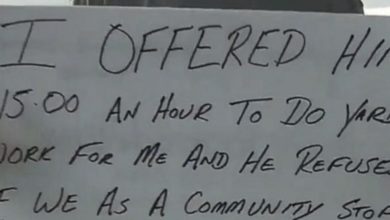 I OFFERED HI
15.00 AN HOUR TO DO YARD
WORK FOR ME AND HE REFUSE
F WE AS A COMMUNITY STOP